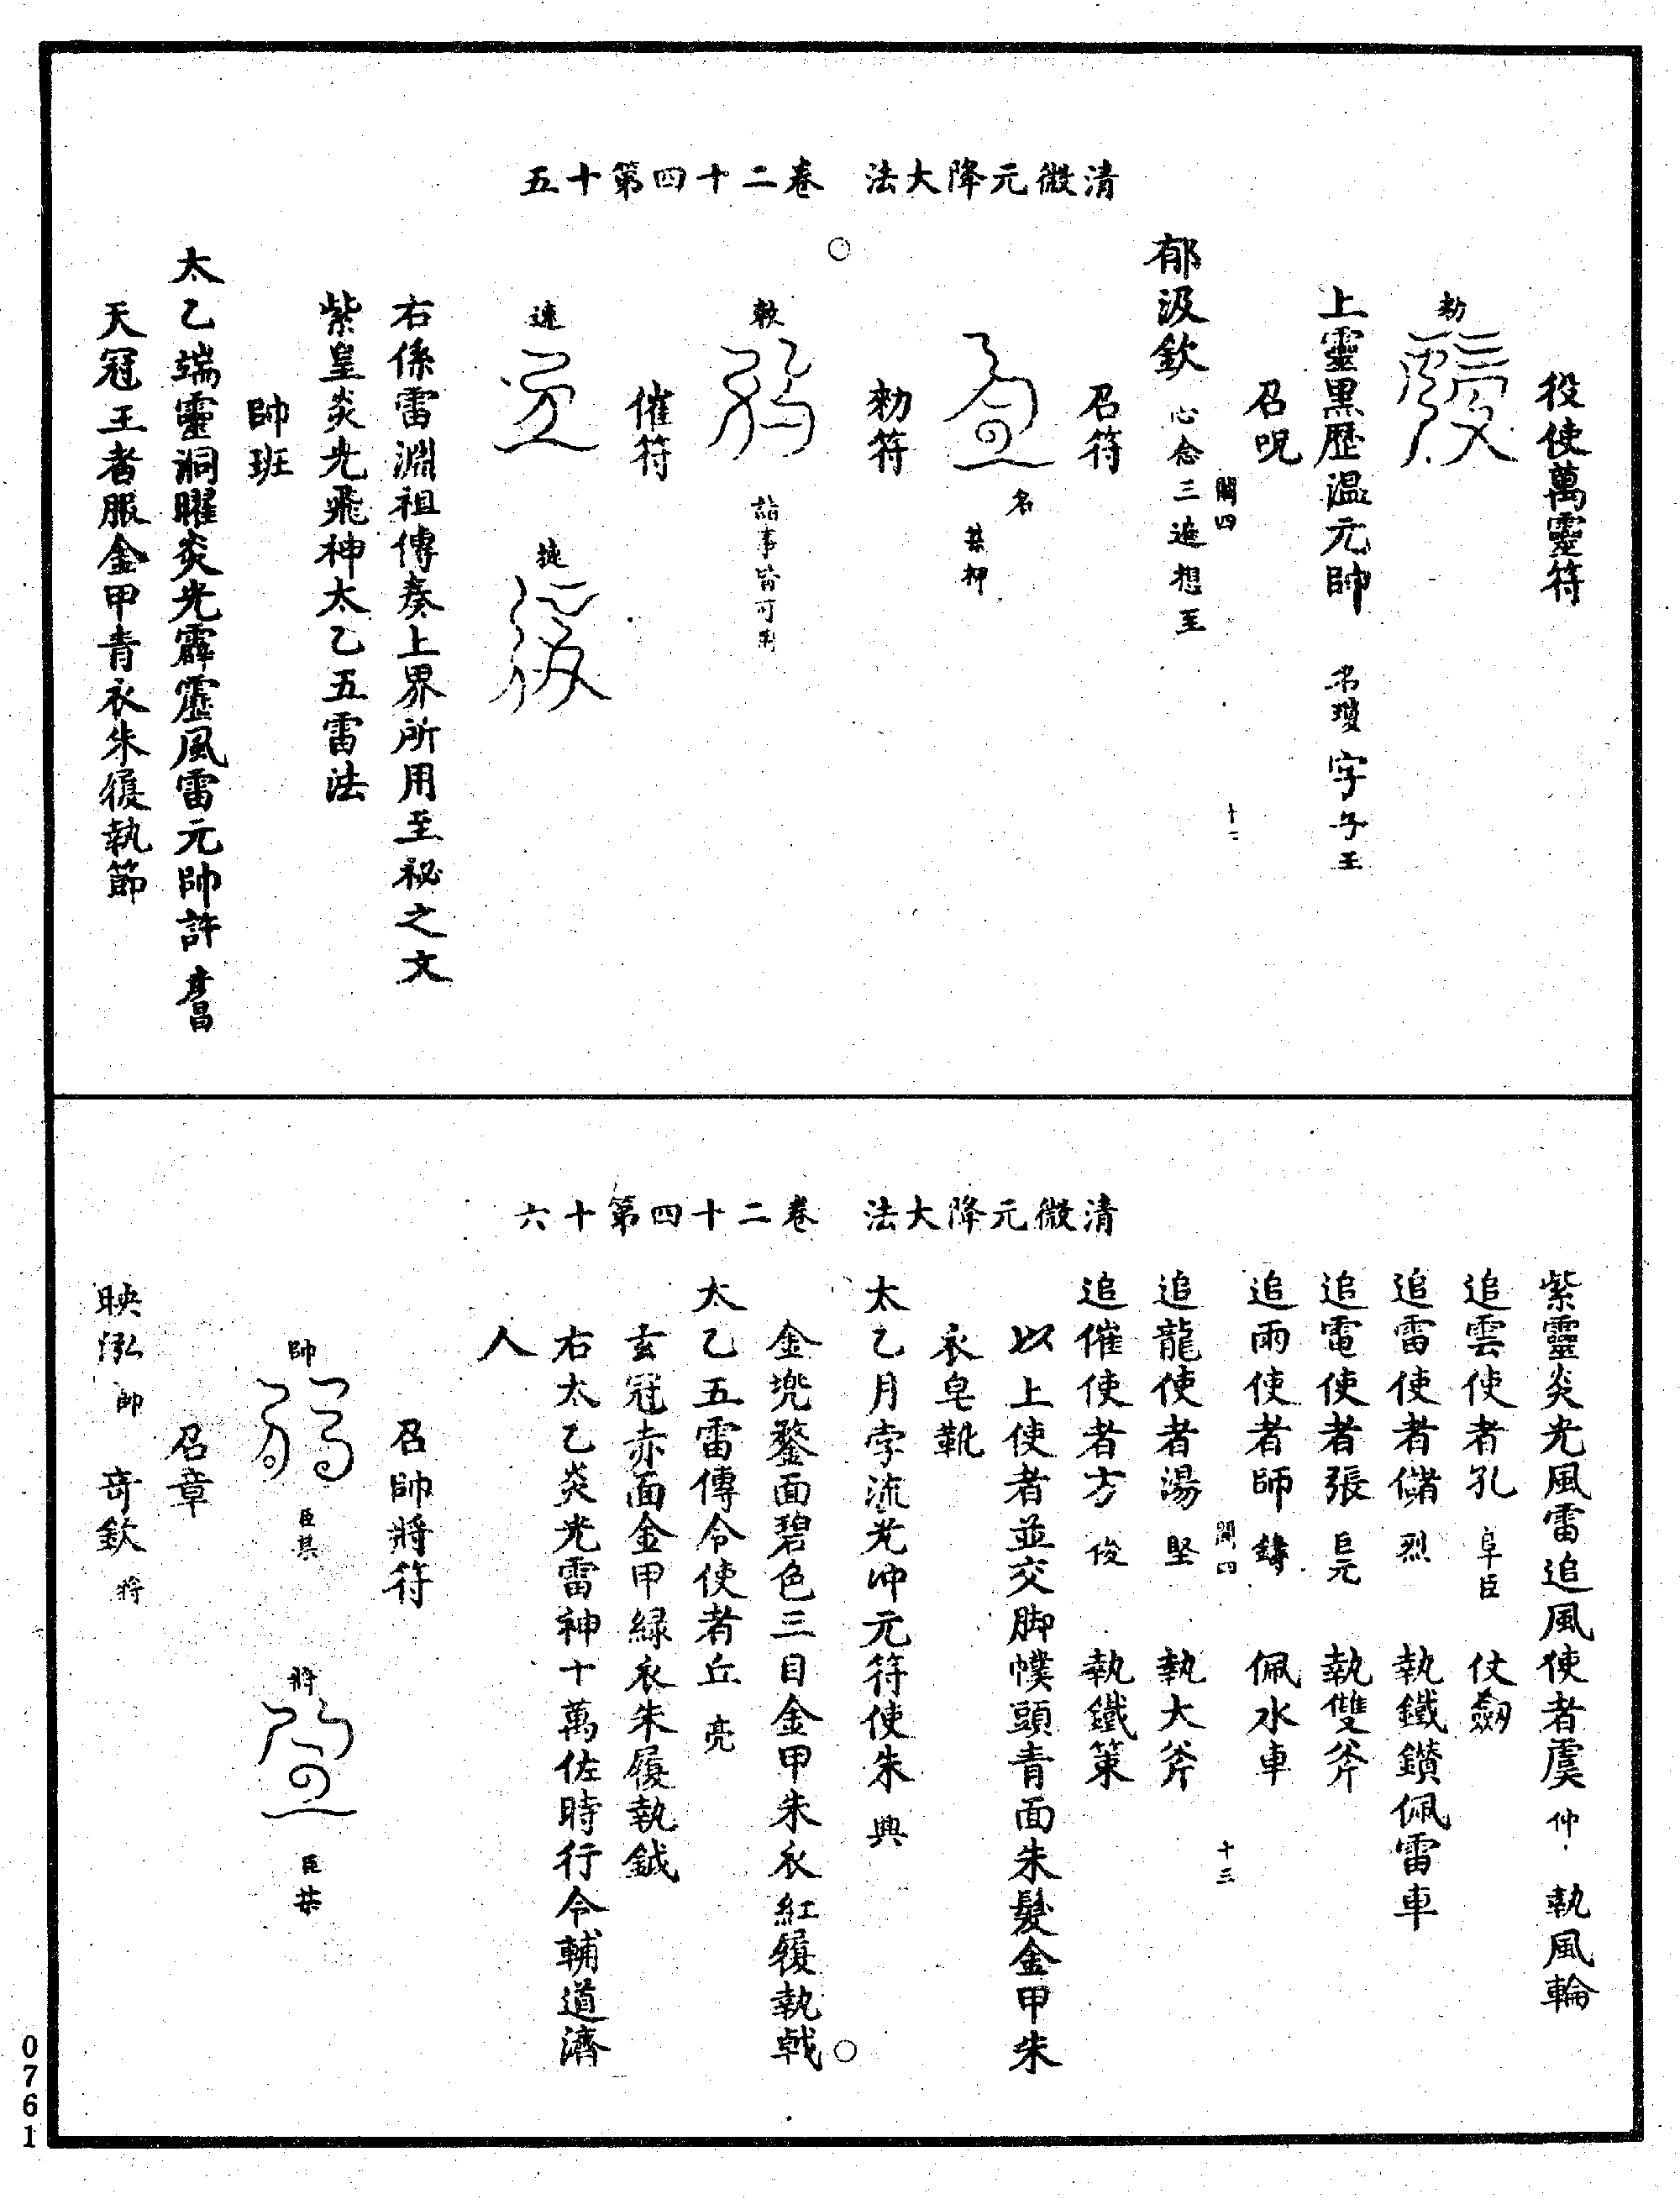 清微元降大法　卷二十四第十五
役使萬靈符
勑
上靈黑歷温元帥　名瓊字子玉
召呪
闕四　十二
郁汲欽　心念三追想至
召符
名
某押
勑符
敕
諸事皆可用
催符
速
捷
右係雷淵祖傳奏上界所用至祕之文
紫皇炎光飛神太乙五雷法
帥班
太乙端靈洞曜炎光霹靂風雷元帥許
天冠王者服金甲青衣朱履執節
清微元降大法　卷二十四第十六
紫靈炎光風雷追風使者虞　仲　執風輪
追雲使者孔　阜臣　仗劒
追雷使者儲　烈　執鐵鑽佩雷車
追電使者張　元　執雙斧
追雨使者師　鑄　佩水車
闕四　十三
追龍使者湯　堅　執大斧
追催使者方　俊　執鐵策
以上使者並交脚幞頭青面朱髮金甲朱
衣皂靴
太乙月孛流光冲元符使朱　興
金兠鍪面碧色三目金甲朱衣紅履執戟
太乙五雷傳令使者丘　亮
玄冠赤面金甲緑衣朱履執鉞
右太乙炎光雷神十萬佐時行令輔道濟
人
召帥將符
帥
臣某
將
臣某
召章
映泓　帥　奇欽　將
0761